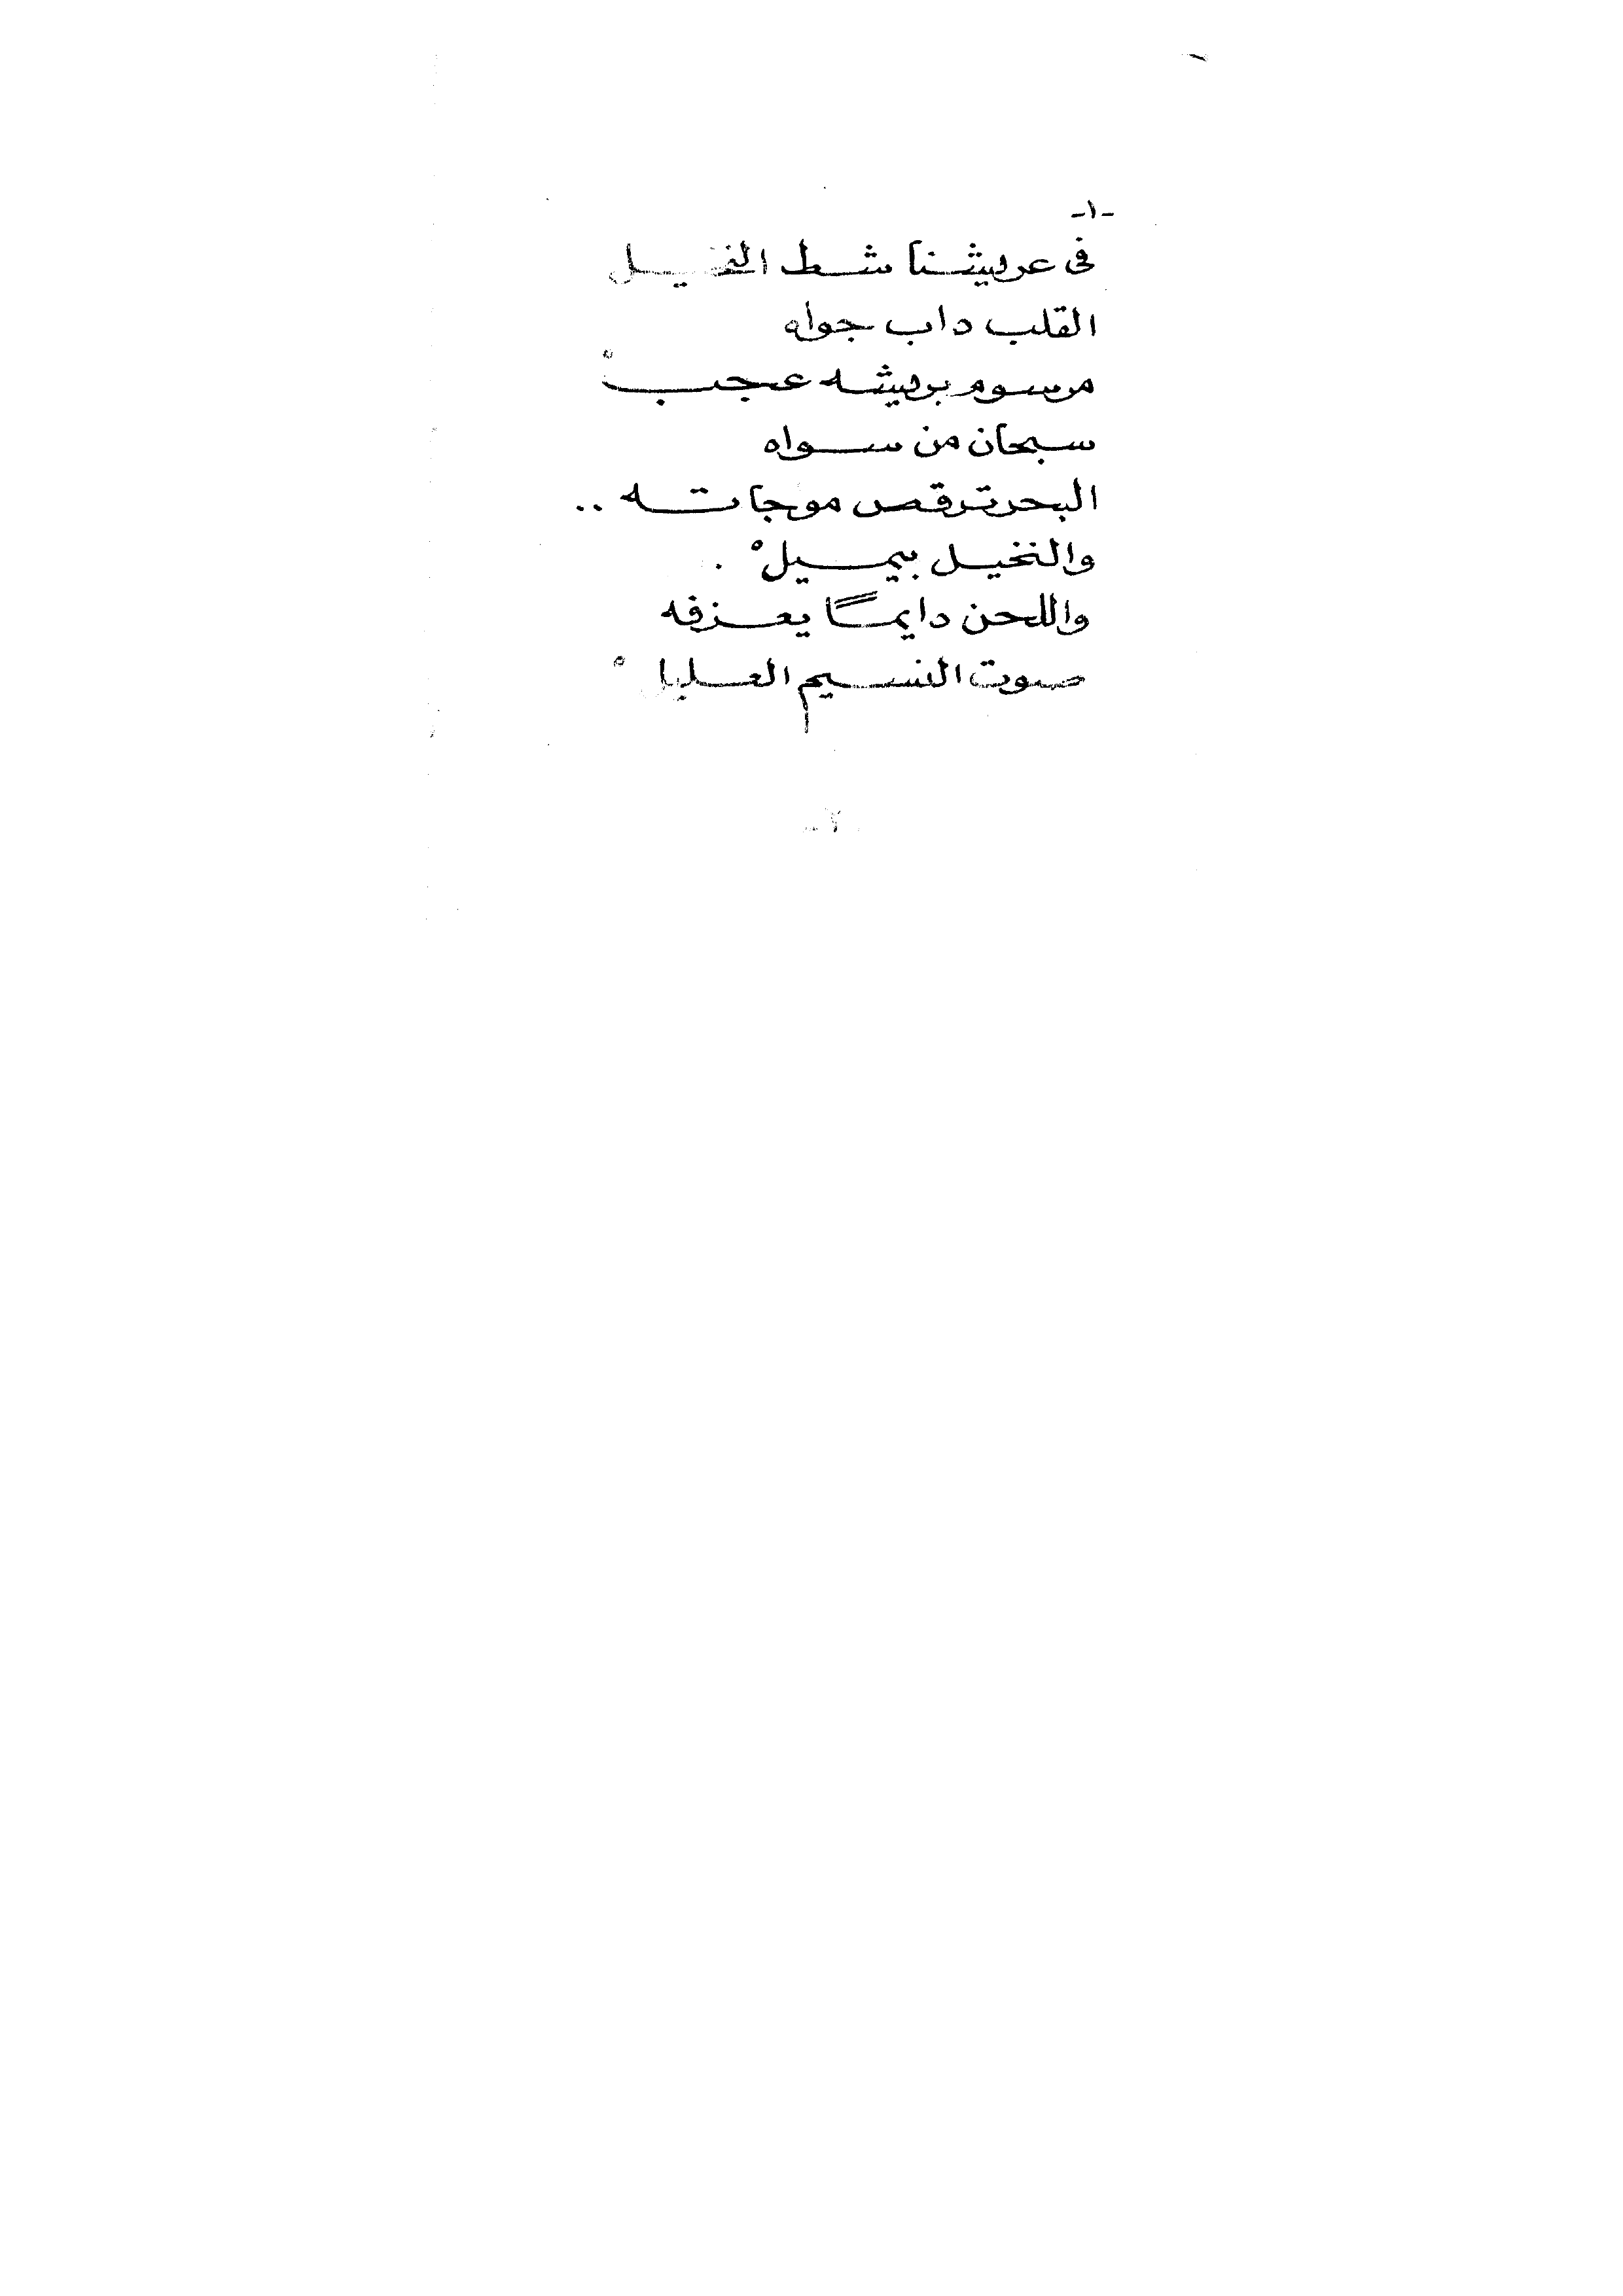 -١-
فى عريشنا شط النخيل
القلب داب جواه
مرسوم بريشه عجبْ
سبحان من سواه
البحر ترقص موجاته ..
والنخيل بيميلْ .
واللحن دايمًا يعزفه
صوت النسيم العليلْ